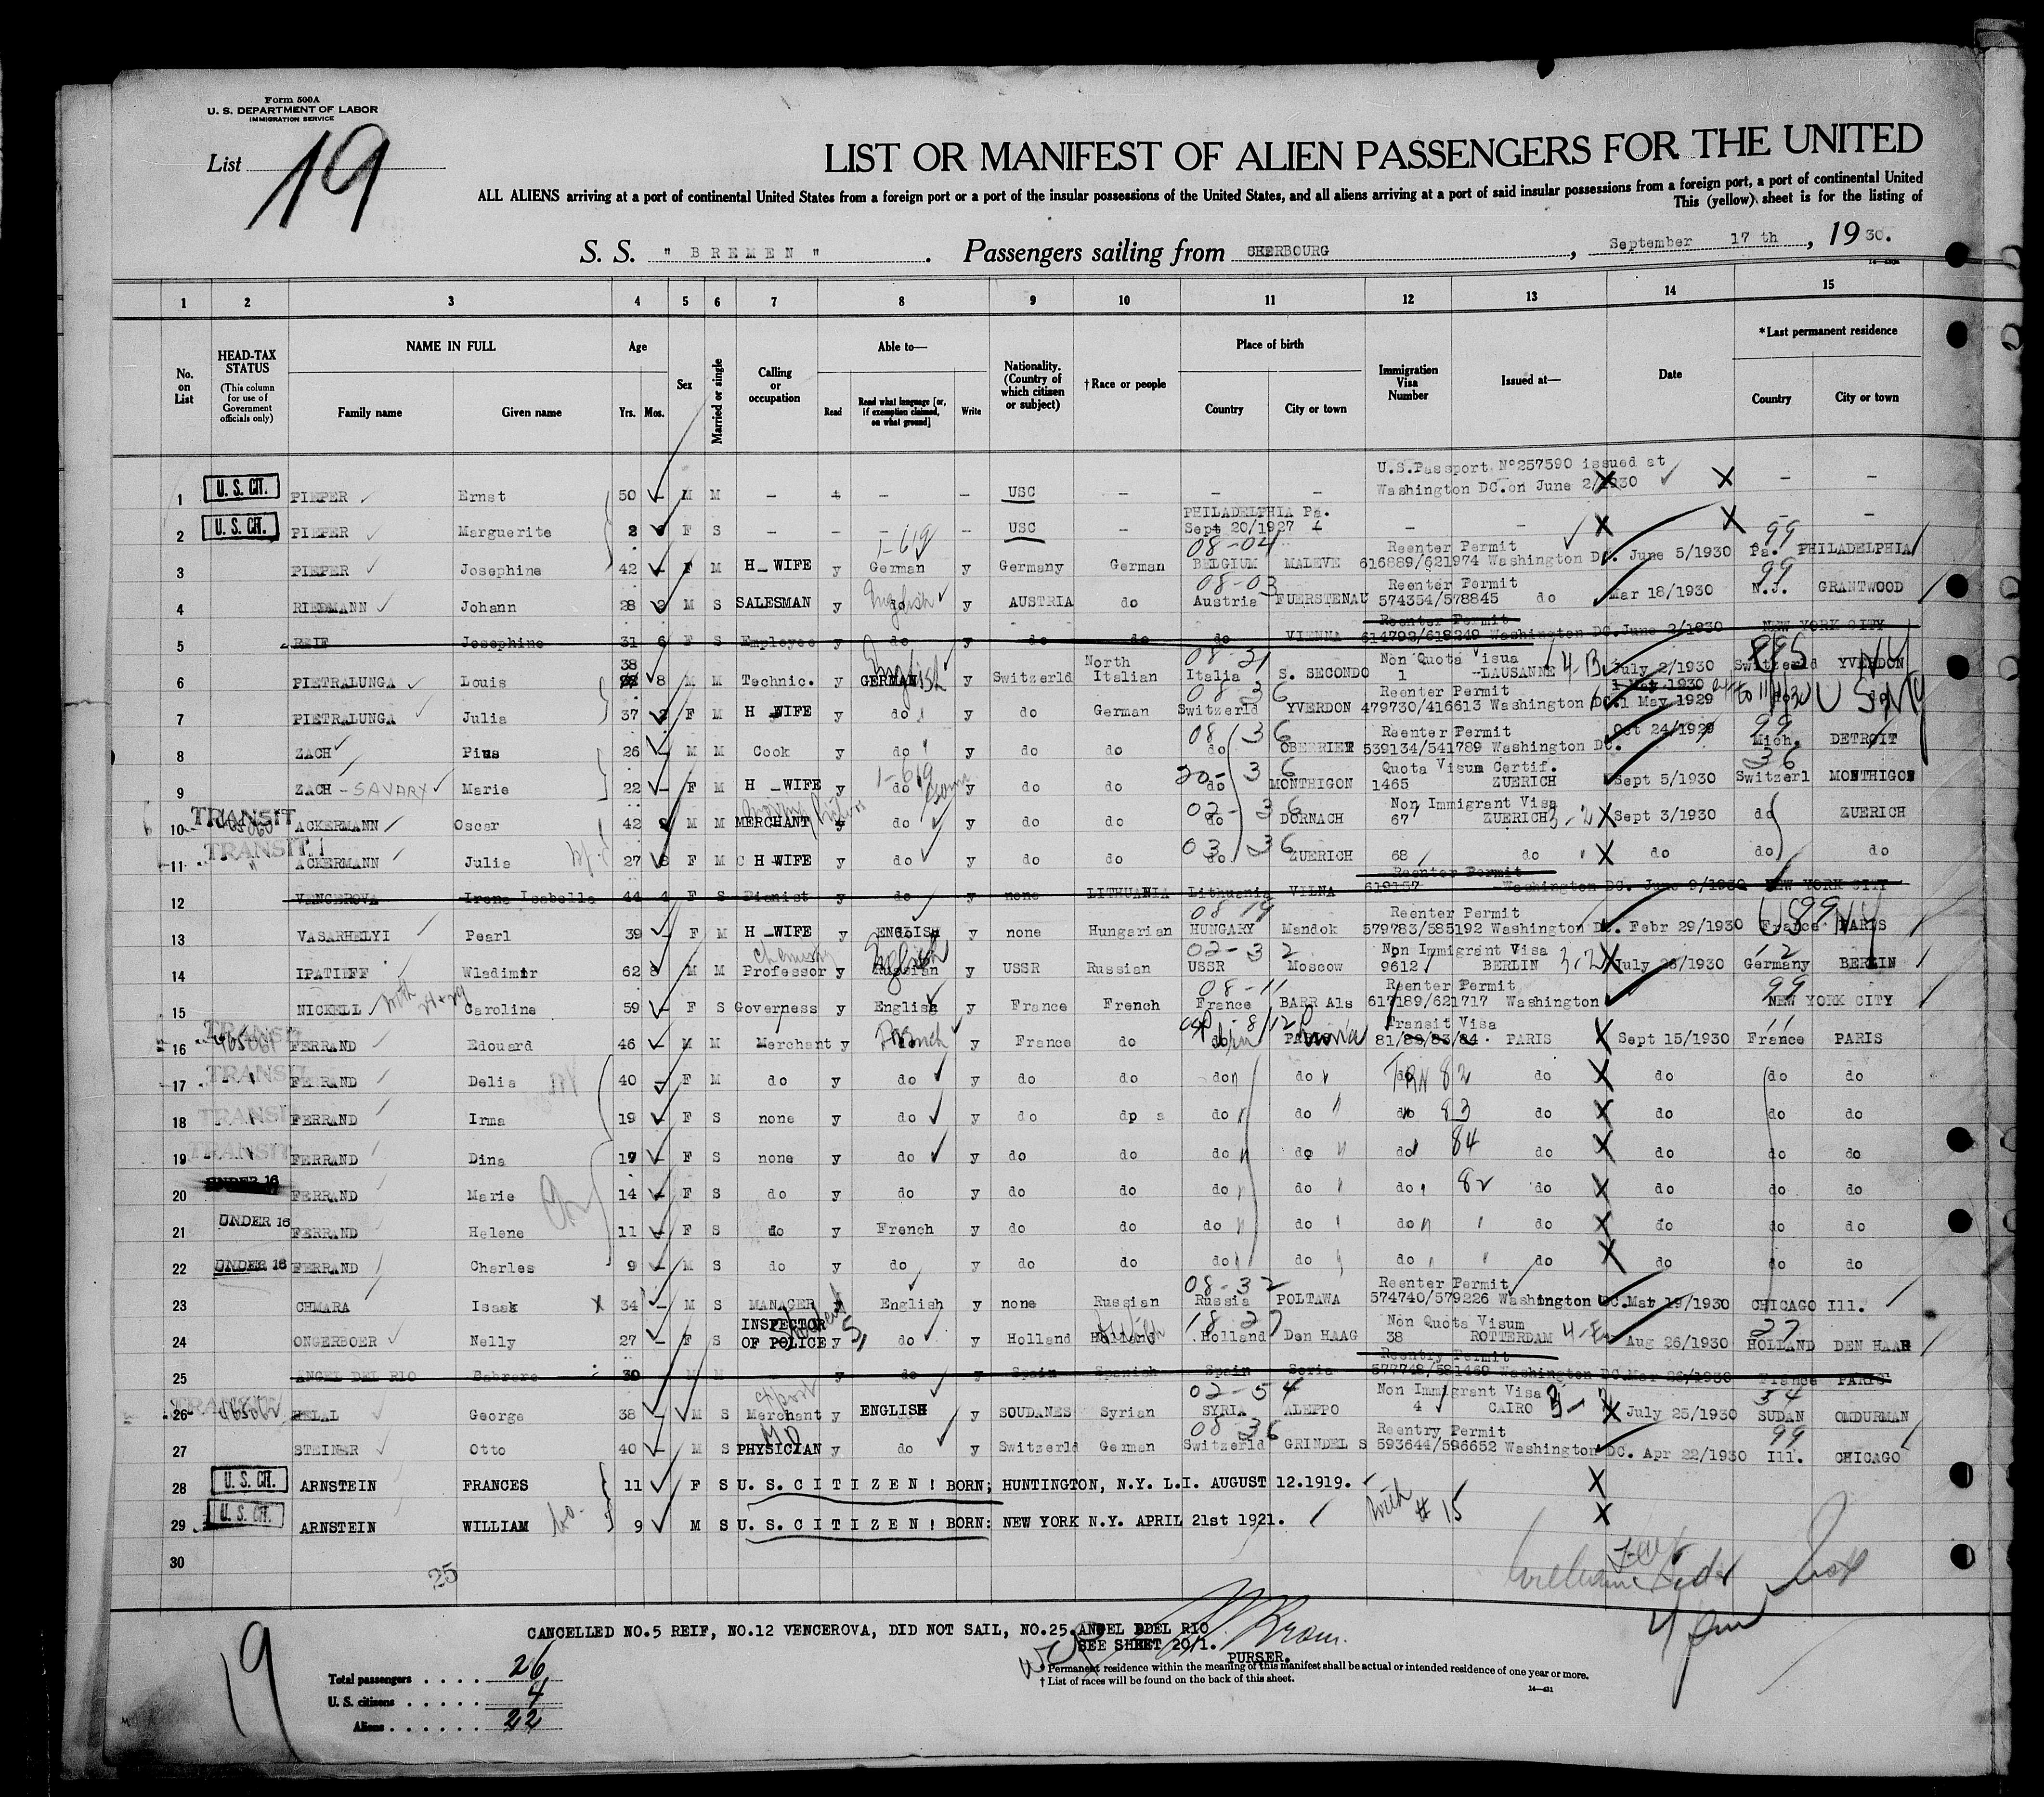 Form 500A
U. S. DEPARTMENT OF LABOR
IMMIGRATION SERVICE
List 19
LIST OR MANIFEST OF ALIEN PASSENGERS FOR THE UNITED
ALL ALIENS arriving at a port of continental United States from a foreign port or a port of the insular possessions of the United States, and all aliens arriving at a port of said insular possessions from a foreign port, a port of continental United
This (yellow) sheet is for the listing of
S. S. " BREMEN " . Passengers sailing from CHERBOURG , September 17 th , 1930.
1 2 3 4 5 6 7 8 9 10 11 12 13 14 15
No. on List
HEAD-TAX STATUS (This column for use of Government officials only)
NAME IN FULL Family name Given name
Age Yrs. Mos.
Sex
Married or single
Calling or occupation
Able to— Read Read what language [or, if exemption claimed, on what ground] Write
Nationality. (Country of which citizen or subject)
†Race or people
Place of birth Country City or town
Immigration Visa Number
Issued at—
Date
*Last permanent residence Country City or town
U.S.Passport Nº257590 issued at
1 U. S. CIT. PIEPER Ernst 50 – M M – – – USC – – – Washington DC. on June 2/1930 X X – –
PHILADELPHIA Pa.
2 U. S. CIT. PIEPER Marguerite 2 F S – – – – USC – Sept 20/1927 – – X X – –
1-619 08-04 Reenter Permit 99
3 PIEPER Josephine 42 – F M H_WIFE y German y Germany German BELGIUM MALEVE 616889/621974 Washington DC. June 5/1930 Pa. PHILADELPHIA
08-03 Reenter Permit 99
4 RIEDMANN Johann 28 M S SALESMAN y do English y AUSTRIA do Austria FUERSTENAU 574354/578845 do Mar 18/1930 N.J. GRANTWOOD
Reenter Permit
5 REIF Josephine 31 6 F S Employee y do y do do do VIENNA 614792/618249 Washington DC. June 2/1930 NEW YORK CITY
38 North 08-31 Non Quota Visum 4-B
6 PIETRALUNGA Louis 8 M M Technic. y GERMAN y Switzerld Italian Italia S. SECONDO 1 -LAUSANNE July 2/1930 Switzerld YVERDON
08-36 Reenter Permit 1 May 1930
7 PIETRALUNGA Julia 37 F M H WIFE y do y do German Switzerld YVERDON 479730/416613 Washington DC. 1 May 1929
08-36 Reenter Permit Oct 24/1929 99
8 ZACH Pius 26 – M M Cook y do y do do do OBERRIET 539134/541789 Washington DC. Mich. DETROIT
1-619 20-36 Quota Visum Certif. 36
9 ZACH - SAVARY Marie 22 – F M H _WIFE y do y do do do MONTHIGON 1465 ZUERICH Sept 5/1930 Switzerl MONTHIGON
02-36 Non Immigrant Visa 3-2
10 TRANSIT ACKERMANN Oscar 42 M M MERCHANT y do y do do do DORNACH 67 ZUERICH X Sept 3/1930 do ZUERICH
03 36
11 TRANSIT " ACKERMANN Julia 27 F M H WIFE y do y do do do ZUERICH 68 do X do do do
Reenter Permit
12 VENCEROVA Irene Isabella 44 4 F S Pianist y do y none LITHUANIA Lithuania VILNA 619157 Washington DC. June 9/1930 NEW YORK CITY
08-19 Reenter Permit 99
13 VASARHELYI Pearl 39 – F M H_WIFE y ENGLISH y none Hungarian HUNGARY Mandok 579783/585192 Washington DC. Febr 29/1930 France PARIS
chemistry English 02-32 Non Immigrant Visa 3-2 12
14 IPATIEFF Wladimir 62 8 M M Professor y Russian y USSR Russian USSR Moscow 9612 BERLIN X July 26/1930 Germany BERLIN
with 28+29 08-11 Reenter Permit 99
15 NICKELL Caroline 59 – F S Governess y English y France French France BARR Als 617189/621717 Washington NEW YORK CITY
Transit Visa 11
16 TRANSIT FERRAND Edouard 46 – M M Merchant y French y France do do 81/82/83/84. PARIS X Sept 15/1930 France PARIS
17 TRANSIT FERRAND Delia 40 – F M do y do y do do do do 82 do X do do do
18 TRANSIT FERRAND Irma 19 – F S none y do y do do do do do 83 do X do do do
19 TRANSIT FERRAND Dina 17 – F S none y do y do do do do do 84 do X do do do
20 UNDER 16 FERRAND Marie 14 – F S do y do y do do do do do 82 do X do do do
21 UNDER 16 FERRAND Helene 11 – F S do y French y do do do do do do X do do do
22 UNDER 16 FERRAND Charles 9 – M S do y do y do do do do do do X do do do
08-32 Reenter Permit
23 CHMARA Isaak X 34 – M S MANAGER y English y none Russian Russia POLTAWA 574740/579226 Washington DC. Mar 19/1930 CHICAGO Ill.
INSPECTOR 18-27 Non Quota Visum 27
24 ONGERBOER Nelly 27 – F S OF POLICE y do y Holland Holland Holland Den HAAG 38 ROTTERDAM Aug 26/1930 HOLLAND DEN HAAR
Reentry Permit
25 ANGEL DEL RIO Cabrere 30 M M – y do y Spain Spanish Spain Soria 577748/581469 Washington DC. Mar 26/1930 France PARIS
Export 02-54 Non Immigrant Visa 3-2 54
26 TRANSIT HELAL George 38 – M S Merchant y ENGLISH y SOUDANES Syrian SYRIA ALEPPO 4 CAIRO X July 25/1930 SUDAN OMDURMAN
MD 08-36 Reentry Permit 99
27 STEINER Otto 40 – M S PHYSICIAN y do y Switzerld German Switzerld GRINDEL S 593644/596652 Washington DC. Apr 22/1930 Ill. CHICAGO
28 U. S. CIT. ARNSTEIN FRANCES 11 F S U. S. C I T I Z E N ! BORN; HUNTINGTON, N.Y. L.I. AUGUST 12.1919. X
with # 15
29 U. S. CIT. ARNSTEIN WILLIAM 9 M S U. S. C I T I Z E N ! BORN: NEW YORK N.Y. APRIL 21st 1921. X
30
25
CANCELLED NO.5 REIF, NO.12 VENCEROVA, DID NOT SAIL, NO.25. ANGEL DEL RIO
SEE SHEET 20/1.
PURSER.
* Permanent residence within the meaning of this manifest shall be actual or intended residence of one year or more.
† List of races will be found on the back of this sheet.
19
Total passengers . . . . . 26
U. S. citizens . . . . . 4
Aliens . . . . . . 22